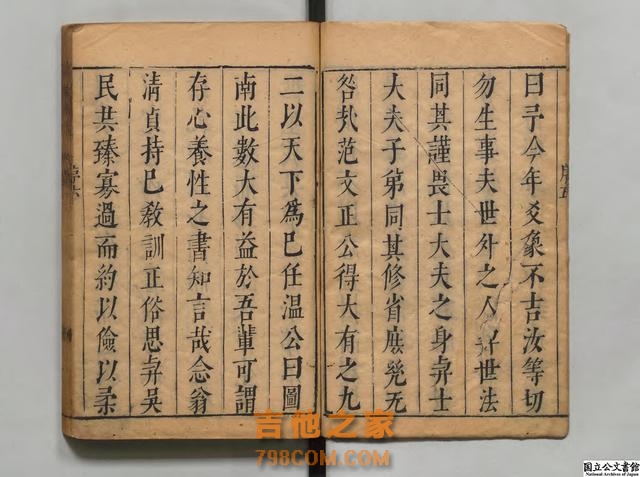 序五
曰予今年爻象不吉汝等切
勿生事夫世外之人世法
同其謹畏士大夫之身士
大夫子第同其修省庶㡬无
咎扵范文正公得大有之九
二以天下為已任温公曰圖
南此數大有益於吾輩可謂
存心養性之書知言哉念翁
清貞持已敎訓正俗思吳
民共臻寡過而約以儉以柔
序六
吉他之家
798COM.COM
国立公文書館
National Archives of Japan